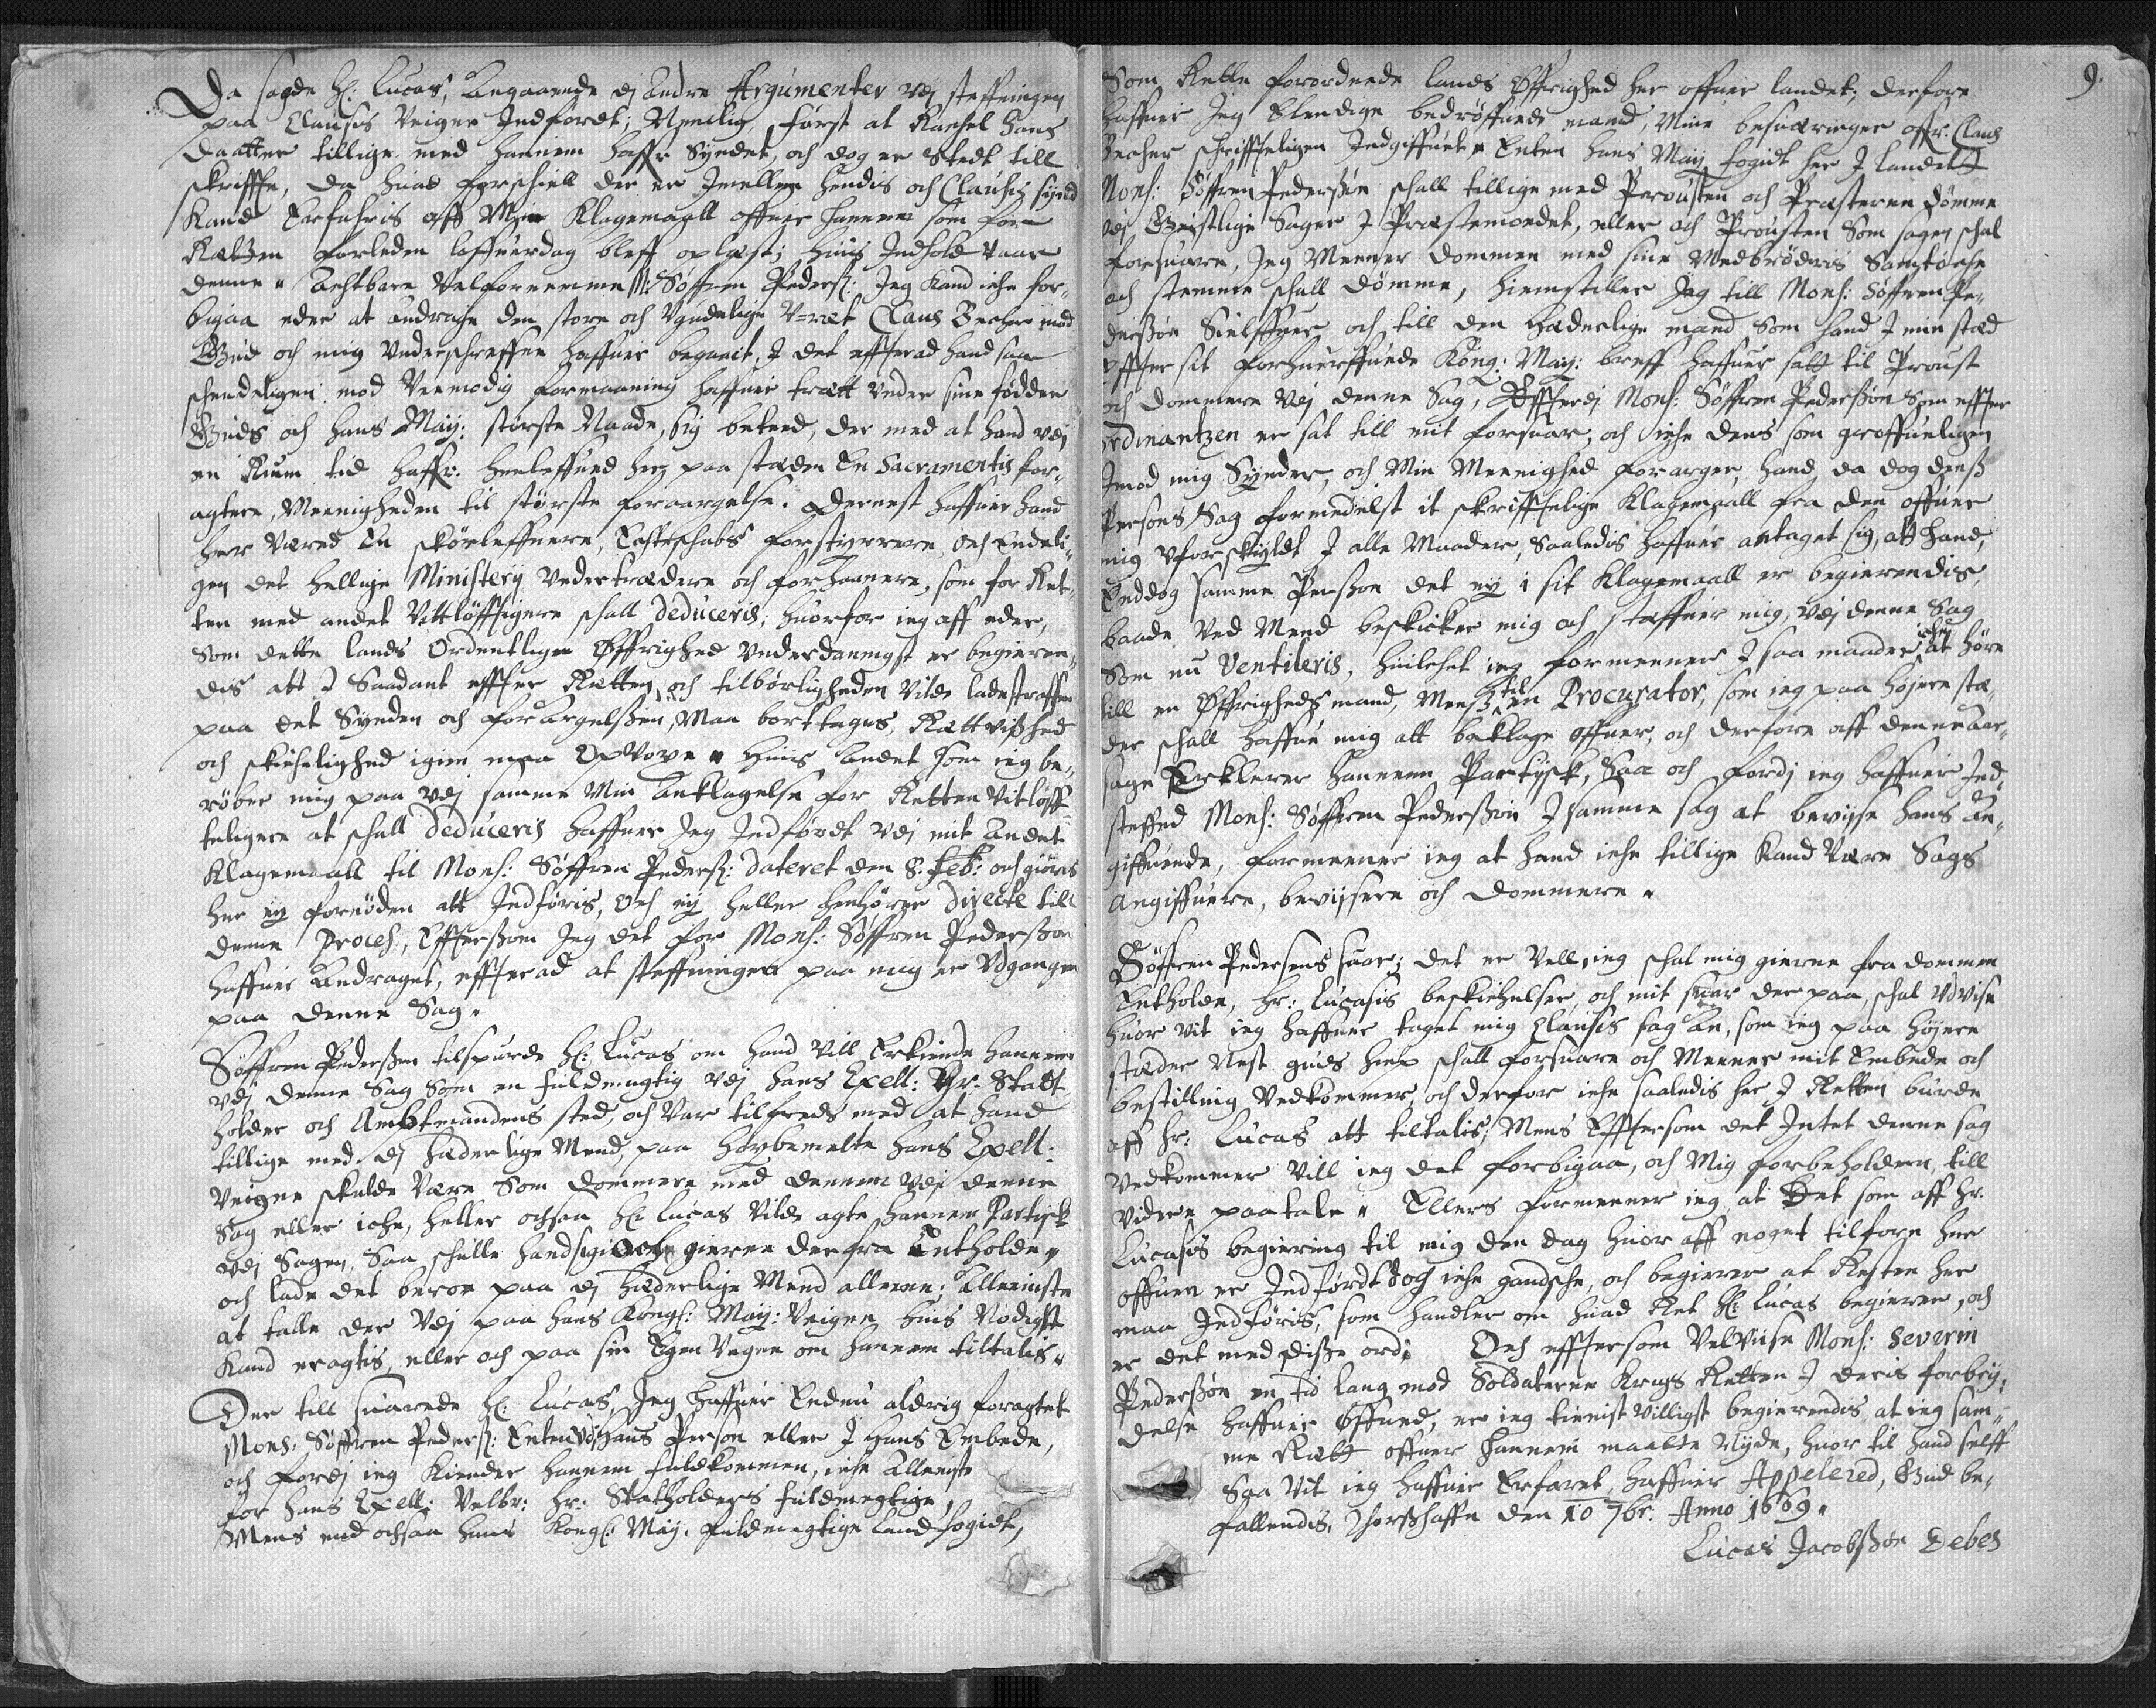 Da sagde H: Lucas, Angaaende dj Andre Argumenter vdj steffningen
paa Clausis Veigne Indfördt; Nemlig, först at Rachel Hans
daatter tillige med hannem haffr Syndet, och dog er Stedt till
skriffte, da huad forschiell der er Jmellem hendis och Clausis synd
Kand Erfahris aff Min Klagemaall offuer hannem som for
Rætten forleden löffuerdag bleff oplæst; huis Indhold vaar
denne " Achtbare Velfornemme M: Söffren Peders: Jeg Kand iche for¬
bigaa eder at andrage den store och Vgudelige V=ræt Claus Becher mod
Gud och mig Vnderschreffne haffuer begaait, J det effterad hand saa
schendeligen mod Veemodig formaaning haffuer trætt vnder sine födder
Guds och hans May: störste Naade, sig beteed, der med at hand vdj
en Rum tid haffr: henleffued her paa stæden En Sacramentis for¬
agtere, Meenigheden til störste foraargelse. Dernest haffuer hand
her Været En skörleffnere, Echteschabs forstyrrere, Och Endeli¬
gen det hellige Ministerij Vndertrædere och forhaanere, som for Ret¬
ten med andet Vittlöfftigere schall deduceris; huorfor ieg aff eder,
Som dette lands Ordentlige Öffrighed Vnderdanigst er begieren¬
dis att J Saadant effter Rætten och tilbörligheden Vilde lade straffe
paa det Synden och forargelßen, Maa borttages, Rættvißhed
och skichelighed igien maa Opvoxe " Huis Andet som ieg be¬
röber mig paa vdj samme Min Anklagelse for Retten Vitlöff¬
teligere at schall deduceris haffuer Jeg Indfördt vdj mit Andet
Klagemaall til Mons: Söffren Peders: dateret den 8. Feb: och giöres
her ey fornöden att Indföris, Och ey heller henhörer directe till
denne Proces:, Effterßom Jeg det for Mons: Söffren Pederßon
haffuer Andraget, effterad at steffningen paa mig er Vdgangen
paa denne Sag "
Söffren Pederßen tilspurde H: Lucas om hand Vill Erkiende hannem
vdj denne Sag Som en fuldmegtig vdj hans Excell: Hr: Statt¬
holder och Ambtmandens sted, och Var tilfreds med at hand
tillige med dj Hæderlige Mend, paa Höybemelte hans Excell:
Veigne skulde Være Som dommere med dennem vdj denne
Sag eller iche, heller ochsaa H: Lucas Vilde agte hannem Partisch
vdj Sagen, Saa schulle hand sig och gierne derfra Entholde "
och lade det beroe paa dj hæderlige Mend allene; Alleeniste
at talle der Vdj paa hans Kongl: May: Veigne huis Nödigst
Kand eragtis, eller och paa sin Egen Vegne om hannem tiltalis "
Der till suarede H: Lucas, Jeg haffuer Endnu aldrig foragtet
Mons. Söffren Peders: Enten vdj hans Person eller J Hans Embede,
och fordj ieg Kiender hannem fuldkommen, iche Alleeniste
for hans Excell: Velbr: hr: Statholders fuldmegtige,
Mens end ochsaa hans Kongl: May. fuldmegtige land fogidt,
9.
Som Rette forordnede lands Öffrighed her offuer landet; derfore
haffuer Jeg Elendige bedröffuede mand, Mine besuæringer offr: Claus
Becher schrifftteligen Indgiffuet " Enten Hans May fogidt her J landett
Mons: Söffren Pederßön schall tillige med Prousten och Præsterne dömme
vdj Geistlige Sager J Præstemoedet, eller och Prousten Som sagen schal
forsuare, Jeg Meener dommen med sine Medbröderis Samtöche
och stemme schall dömme, hiemstiller Jeg till Mons: Söffren Pe¬
derßön Sielffuer, och till den Hæderlige mand Som hand J min stæd
effter sit forhuerffuede Kong: May: breff haffuer satt til Proust
och dommere vdj denne Sag, Effterdj Mons: Söffren Pederßön Som effter
ordinantzen er sat till mit forsuar, och iche dens som groffueligen
Jmod mig Synder, och Min Meenighed forarger, hand da dog denß
Persons Sag formedelst it skrifftelige Klagemaall fra den offuer
mig Vforskyldt J alle Maader, Saaledis haffuer antaget sig, att hand,
Enddog samme Persßon det ey i sit Klagemaall er begierendis,
baade Ved Mend beskicker mig och steffner mig, vdj denne Sag
Som nu Ventileris, huilchet ieg formeener J saa maader iche at höre
till en Öffrigheds mand, Mens til en Procurator, som ieg paa höjere stæ¬
der schall haffue mig att beklage offuer, och derfore aff denne aar¬
sage Erklerer hannem Partysk, Saa och fordj ieg haffuer Ind¬
steffned Mons: Söffren Pederßön J samme sag at bevyse hans An¬
giffuende, formeener ieg at hand iche tillige Kand Være Sags
Angiffuere, bevysere och dommere "
Söffren Pedersens suar; det er Vell, ieg schal mig gierne fra dommen
Entholde, hr: Lucasis beskichelser, och mit suar der paa, schal Vdvise
huor vit ieg haffuer taget mig Clausis sag An, som ieg paa höjere
stæder Nest guds hielp schall forsuare och Meener mit Embede och
bestilling Vedkommer, och derfor iche saaledis her J Retten burde
aff hr: Lucas att tiltalis, Mens Efftersom det Intet denne sag
Vedkommer Vill ieg det forbigaa, och Mig forbeholden, till
Videre paatale " Ellers formeener ieg at Det som aff hr.
Lucasis begiering til mig den dag huor aff noget tilforn her
offuen er Indfördt Doch iche gandsche, och begierer at Resten her
maa Indföris, som handler om huad Ret H: Lucas begierer, och
er det med disße ord: Och efftersom Velviise Mons: Severin
Pederßön en tid lang mod Soldaterne Krigs Retten J deris forbry¬
delse haffuer öffued, er ieg tienist Villigst begierendis at ieg sam¬
me Rætt offuer hannem maatte Nyde, huor til hand selff
Saa Vit ieg haffuer Erfaret, haffuer Appelered, Gud be¬
fallendis, Thorßhaffn den 10 7br: Anno 1669 "
Lucas Jacobßön Debes